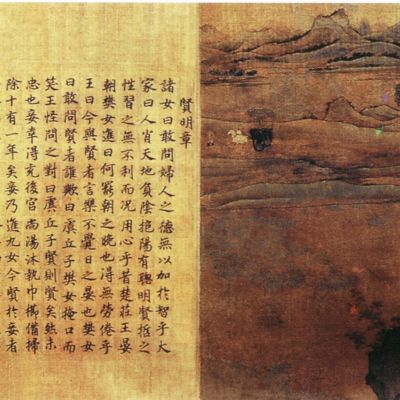 賢明章
諸女曰敢問婦人之德無以加於智乎大
家曰人肖天地負陰抱陽有聰明賢哲之
性習之無不利而况用心乎昔楚莊王晏
朝樊女進曰何罷朝之晚也得無勞倦乎
王曰今與賢者言樂不覺日之晏也樊女
曰敢問賢者誰歟曰虞丘子樊女掩口而
笑王怪問之對曰虞丘子賢則賢矣然未
忠也妾幸得充後宮尚湯沐執巾櫛備掃
除十有一年矣妾乃進九女今賢於妾者